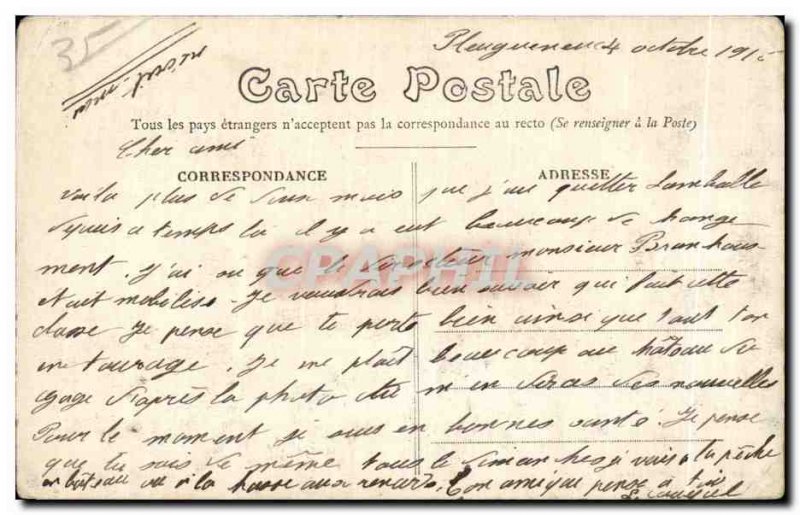 35
4 octobre 191
Carte Postale
Tous les pays étrangers n'acceptent pas la correspondance au recto (Se renseigner à la Poste)
Cher ami
CORRESPONDANCE
ADRESSE
voila plus de deux mois que j'ai quitter Lamballe
depuis ce temps la il y a eut beaucoup de change
ment. J'ai vu que le directeur monsieur
était mobilisé. Je voudrais bien savoir qui fait cette
classe Je pense que te porte bien ainsi que tout ton
entourage. Je me plait beaucoup au château de
d'après la photo tu m'en diras des nouvelles
Pour le moment je suis en bonnes santé. Je pense
que tu sois de même tous le dimanches je vais à la pêche
en bâteau ou à la Ton ami que pense à toi
CPAPHIL